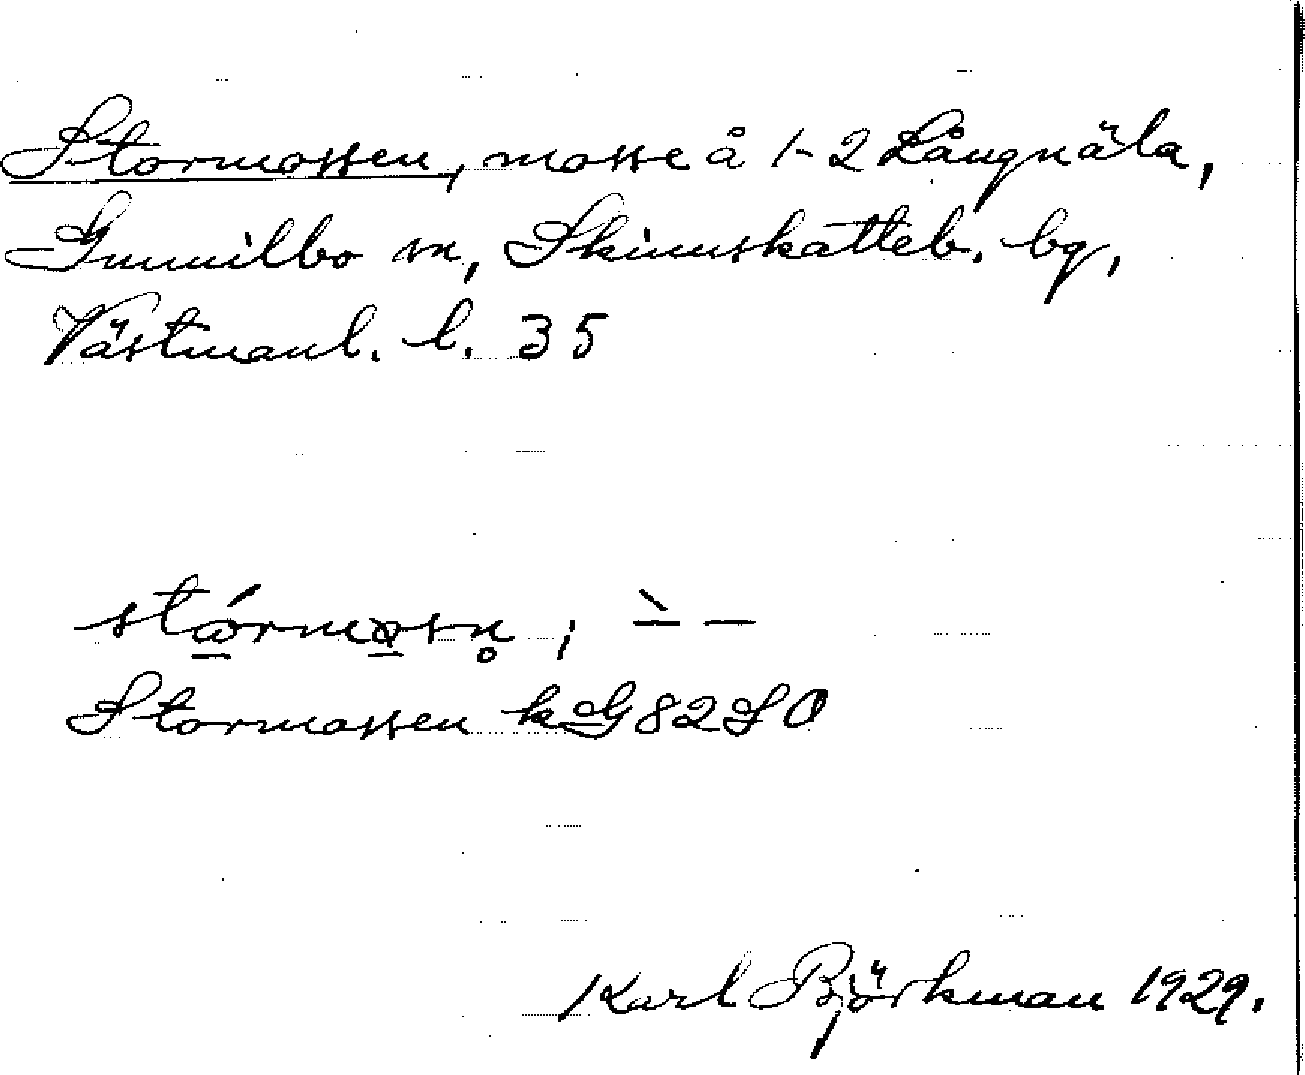 Stormossen, mosse å 1-2 Långnäla,
Gunnilbo sn, Skinnskatteb. bg,
Västmanl. l. 35
stórmosn̥ ; ∸ —
Stormossen kG 82 SO
Karl Björkman 1929.